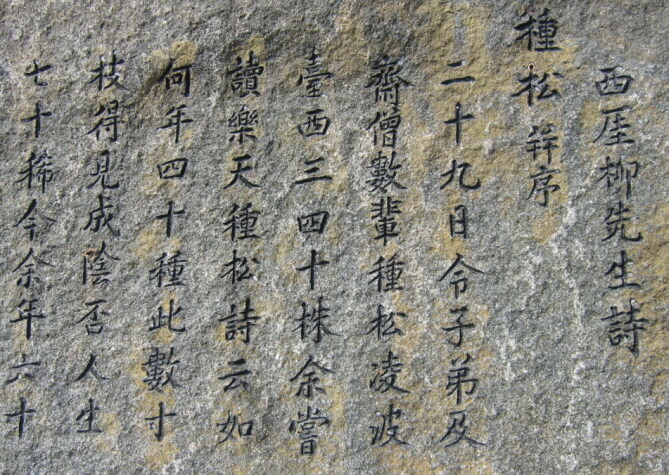 西厓柳先生詩
種松 幷序
二十九日令子弟及
齋僧數輩種松凌波
臺西三四十株余嘗
讀樂天種松詩云如
何年四十種此數寸
枝得見成陰否人生
七十稀今余年六十